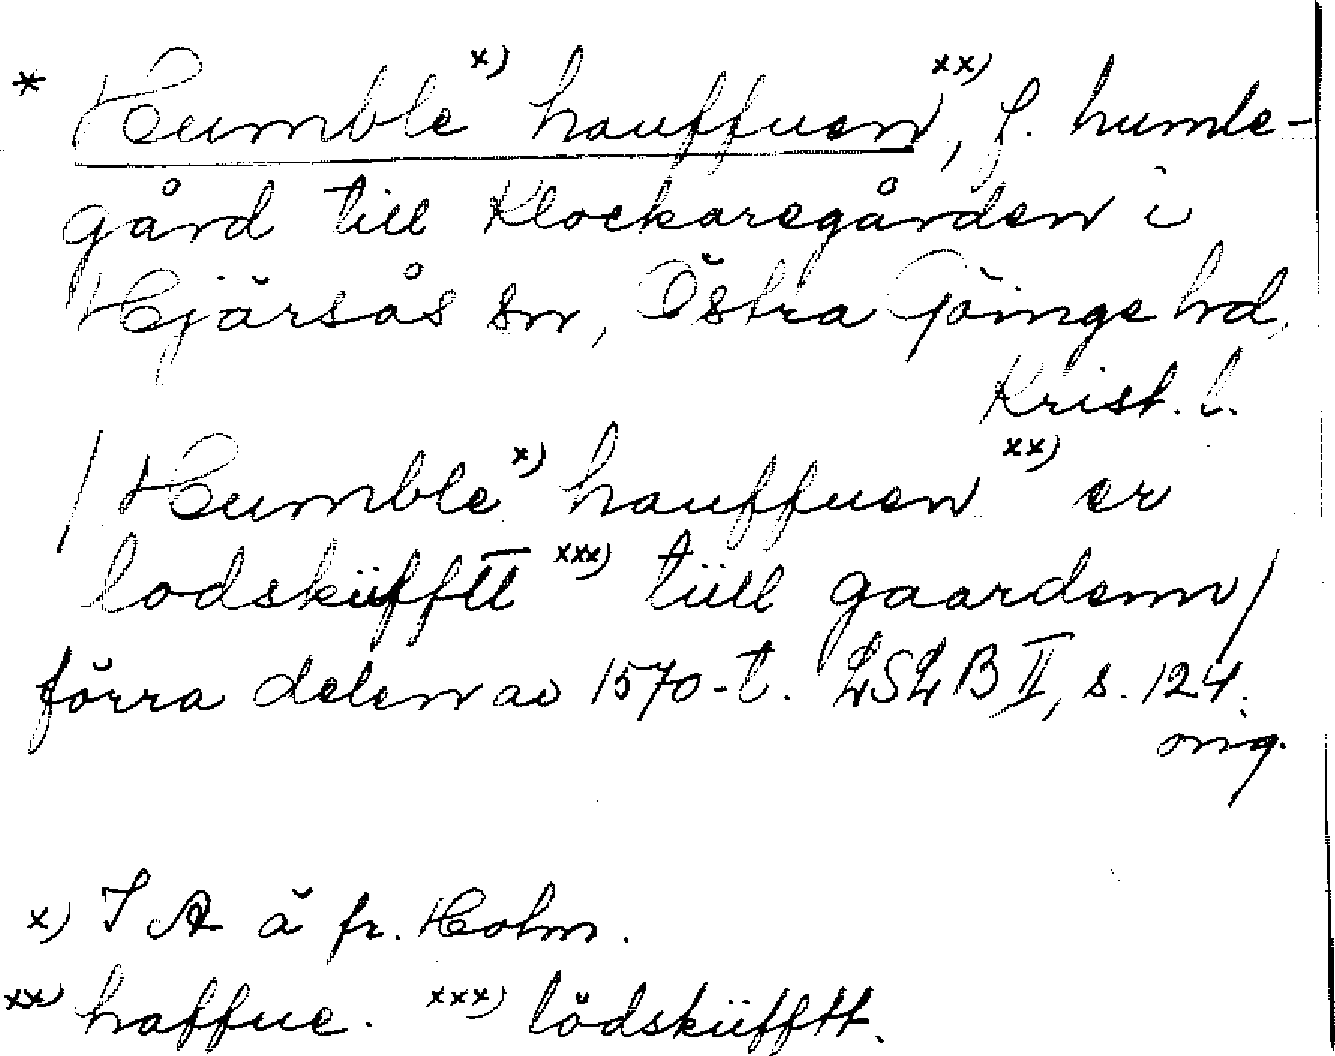 * Humble x) hauffuen, xx) f. humle-
gård till Klockaregården i
Hjärsås sn, Östra Göinge hd,
Krist. l.
/ Humble x) hauffuen xx) er
lodsküfftt xxx) tüll gaardenn /
förra delen av 1570-t. LSLB II, s. 124.
orig.
x) I A ä fr. Holm.
xx) haffue. xxx) lödsküfftt.